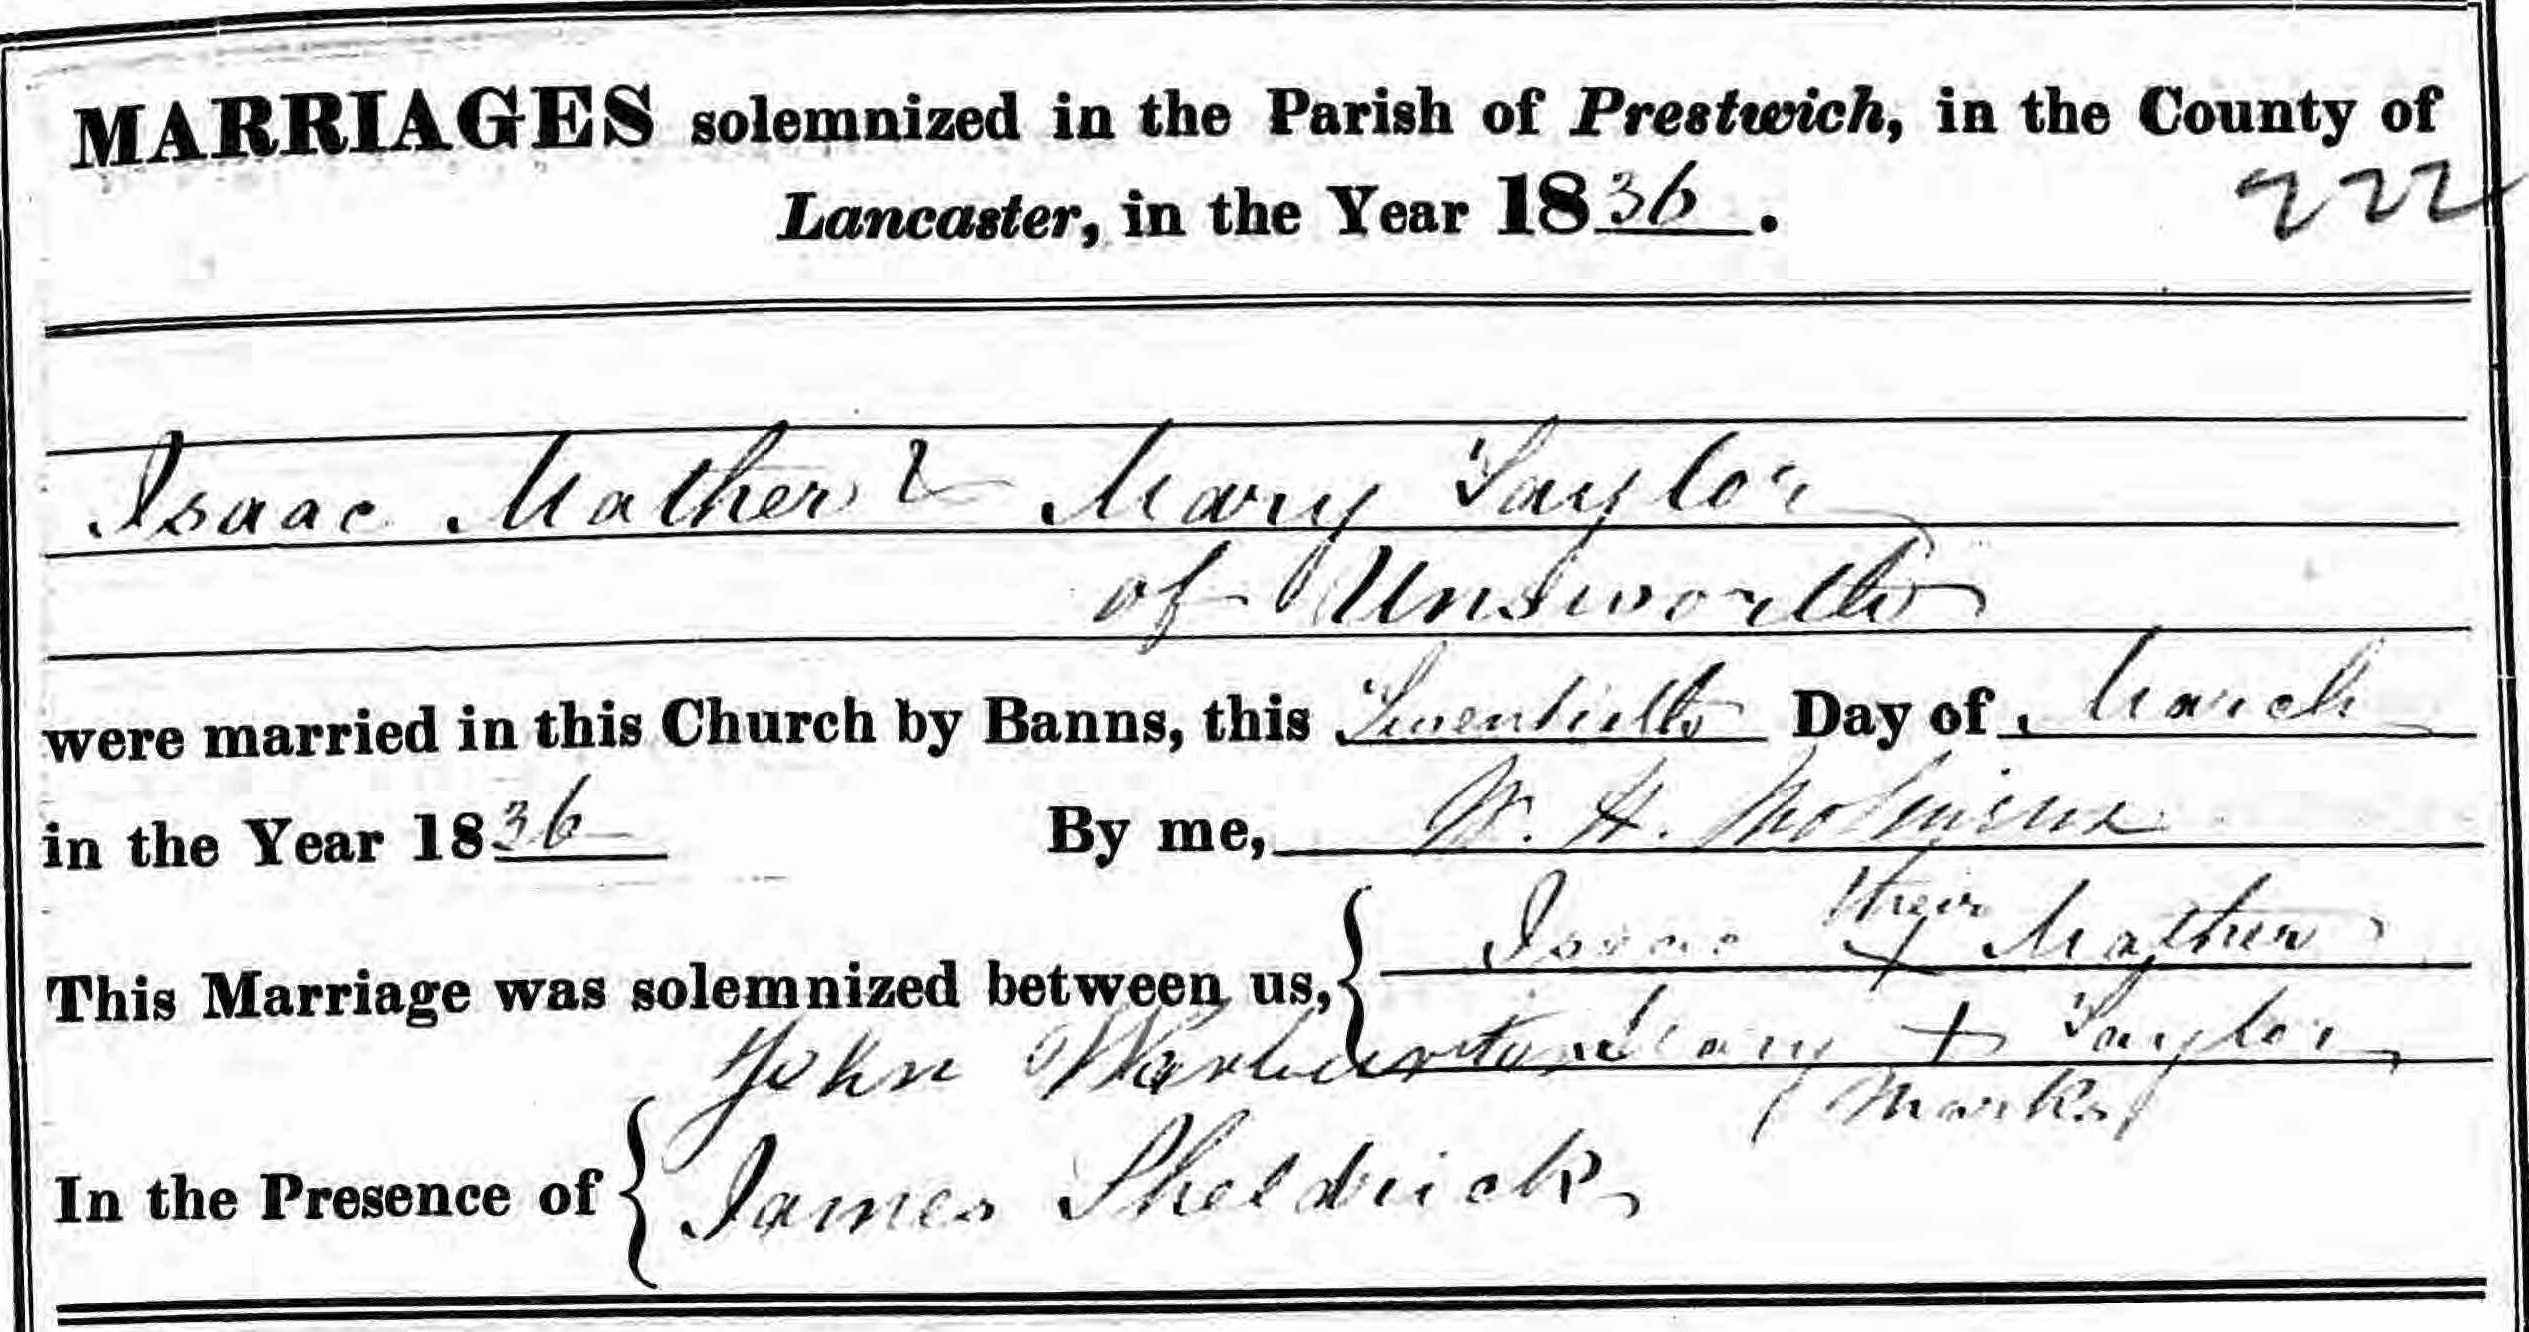 MARRIAGES solemnized in the Parish of Prestwich, in the County of
Lancaster, in the Year 1836.
222
Isaac Mather & Mary Taylor
of Unsworth
were married in this Church by Banns, this Twentieth Day of March
in the Year 1836 By me, W. H. Molineux
their
This Marriage was solemnized between us, { Isaac + Mather
Mary + Taylor
marks
John Warburton
In the Presence of { James Sheldrick